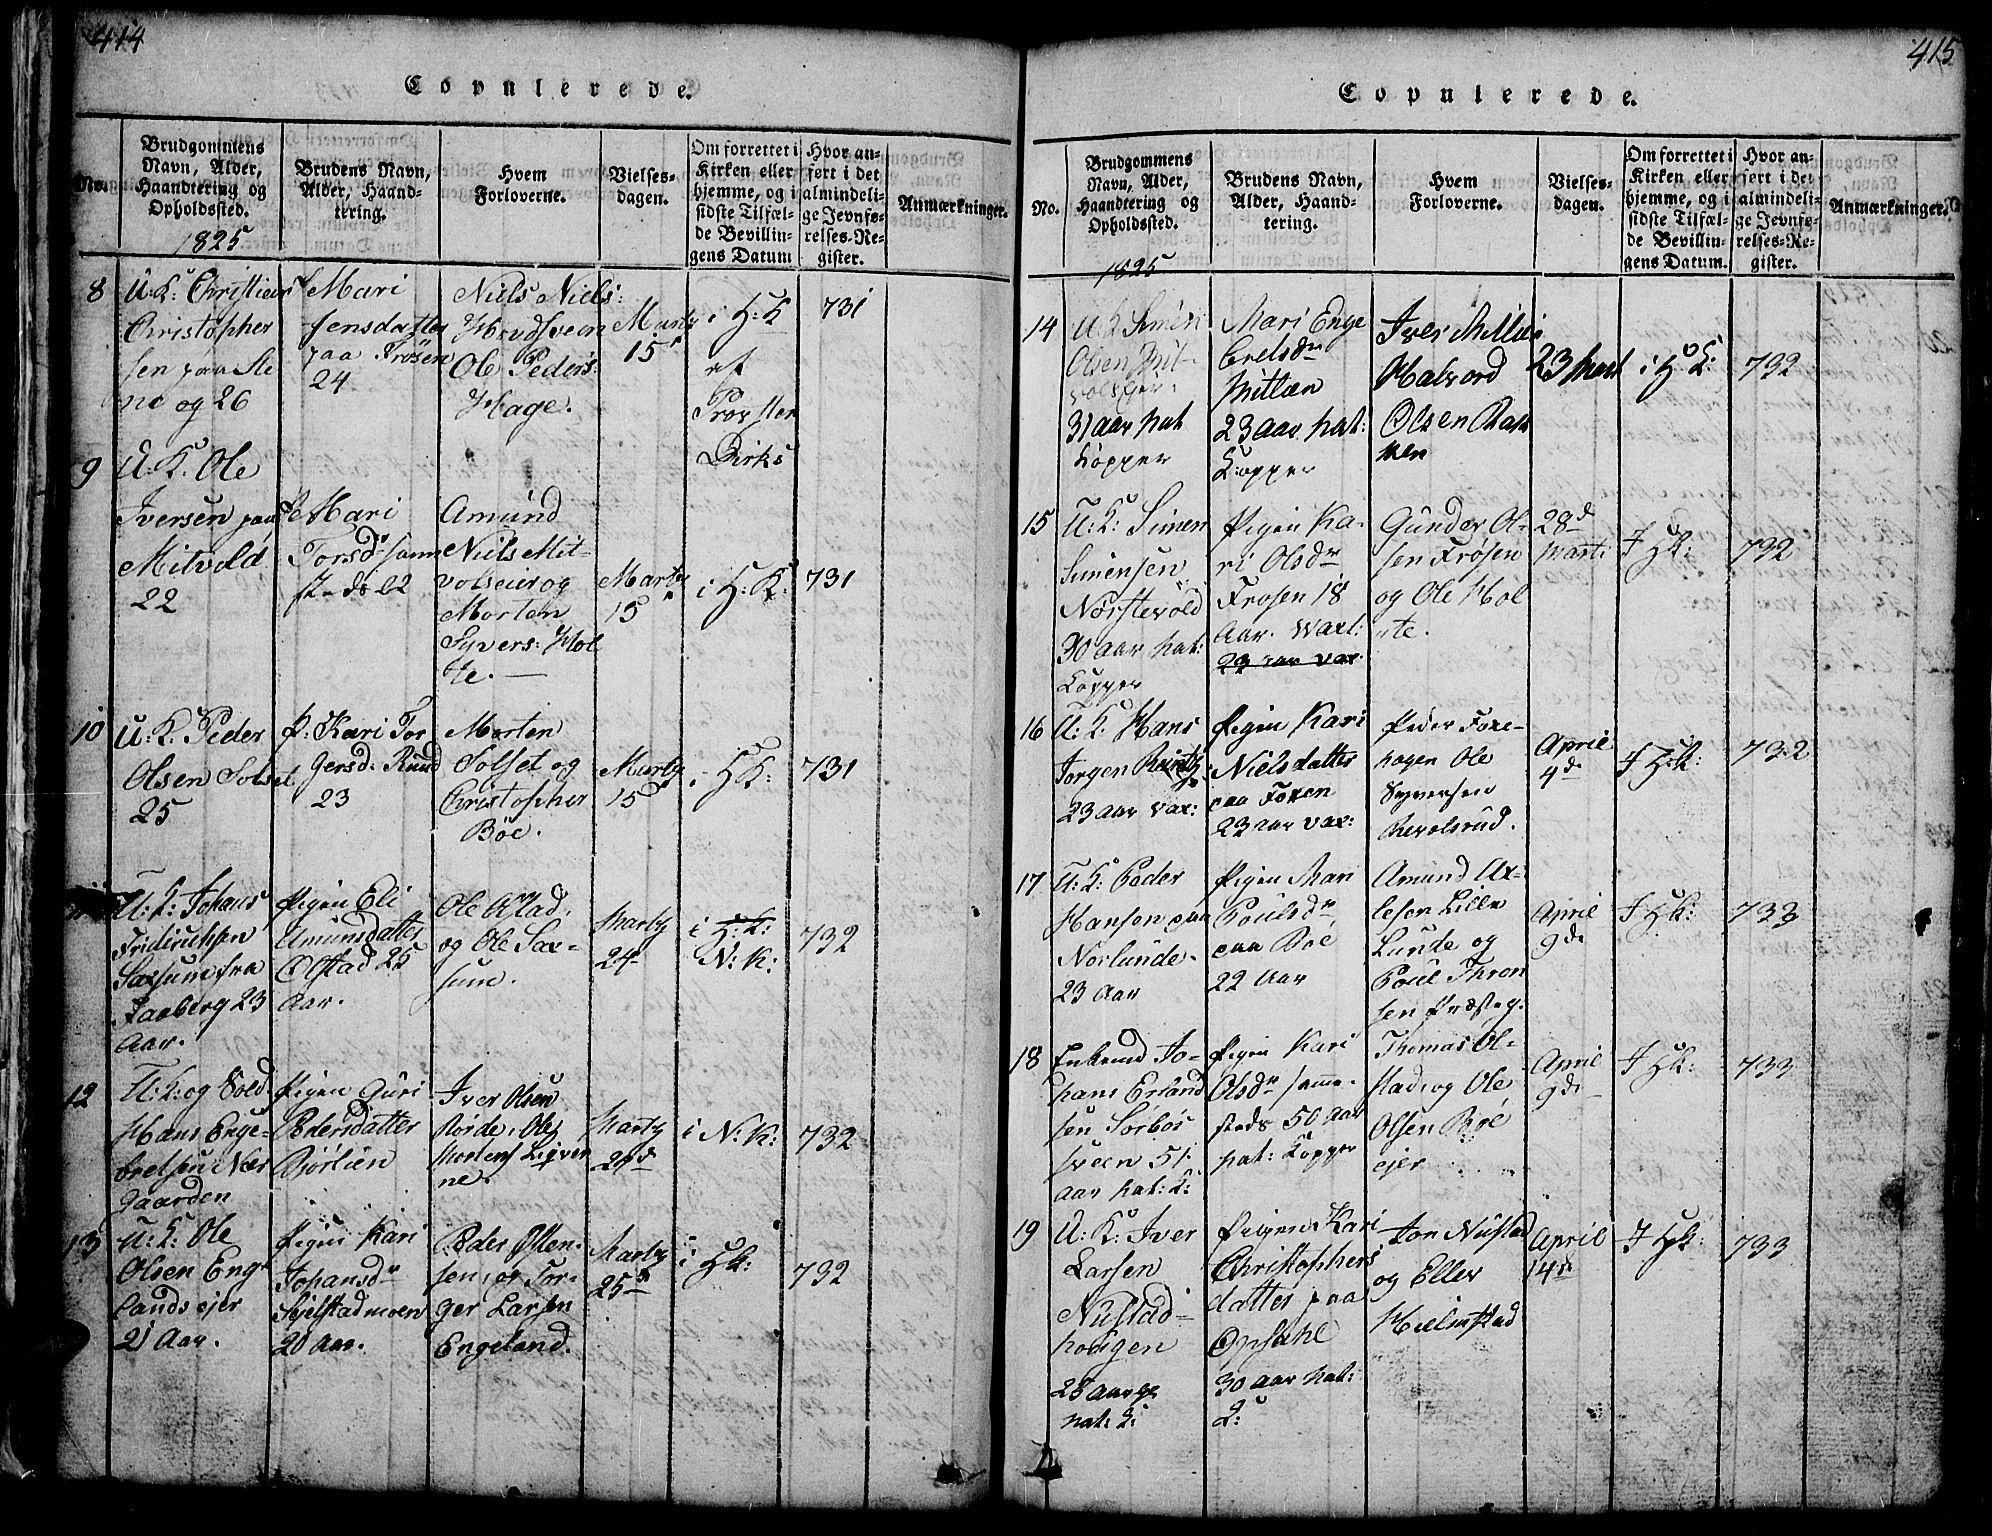 414
Copulerede.
No.
Brudgommens
Navn, Alder,
Haandtering og
Opholdssted.
Brudens Navn,
Alder, Haand-
tering.
Hvem
Forloverne.
Vielses-
dagen.
Om forrettet i
Kirken eller
hjemme, og i
sidste Tilfæl-
de Bevillin-
gens Datum
Hvor an-
ført i det
almindeli-
ge Jevnfø-
relses-Re-
gister.
Anmærkninger.
1825
8
U: K: Christian
Christopher
sen paa
og 26
Mari
Jensdatter
paa Frösen
24
Niels Niels:
Ole Peders:
Hage.
Marty
15
i H: K
et
Provsten
Dirks
731
9
U: K: Ole
Iversen paa
Mitvold
22
Mari
Torsd samme
steds 22
Amund
Niels Mit-
og
Morten
Syvers: Hol
te.
Marty
15
i H: K:
731
10
U: K: Peder
Olsen Solset
25
P: Kari Tor
gersd: Rund
23
Morten
Solset og
Christopher
Böe.
Marty
15
i H K:
731
U: K: Johans
Fridrichsen
Saxsum fra
Faaberg 23
Aar.
Pigen Eli
Amunsdatter
Olstad 25
Aar.
Ole
og Ole Sax-
sum.
Marty
24
i H: K:
N: K:
732
12
U: K: og Sold
Hans Enge-
bretsen Nær
gaarden
Pigen Guri
Pedersdatter
Björlien
Iver Olsen
og Ole
ne.
Marty
i N: K:
732
13
U: K: Ole
Olsen Eng
landsejer
21 Aar.
Pigen Kari
Johansdr
20 Aar.
Peder Osten-
sen, og Tor-
ger Larsen
Engeland.
Marty
25d
i HK:
732
415
Copulerede.
No.
Brudgommens
Navn, Alder,
Haandtering og
Opholdssted.
Brudens Navn,
Alder, Haand-
tering.
Hvem
Forloverne.
Vielses-
dagen.
Om forrettet i
Kirken eller
hjemme, og i
sidste Tilfæl-
de Bevillin-
gens Datum.
Hvor an-
ført i det
almindeli-
ge Jevnfø-
relses-Re-
gister.
Anmærkninger.
1825
14
U: K Simen
Olsen Mit-
31 aar hat
Kopper
Mari Enge
bretsdr
Mitlien
23 aar hat:
Kopper
Iver
Halvord
Olsen
23 Mart
i H K:
732
15
U: K: Simen
Simensen
Norstevold
30 aar hat:
Kopper
Pigen Ka-
ri Olsdr
Frosen 18
Aar. Vax:
22 aar vax.
Gunder Ol-
sen Frøsen
og Ole Hol
te.
28d
Marti
I HK:
732
16
U: K: Hans
Jorgen
23 aar vax:
Pigen Kari
Nielsdatter
paa Foxen
22 aar vax:
Peder Foxe-
hogen Ole
Syversen
April
4d
I HK:
732
17
U: K: Peder
Hansen paa
Norlunde.
23 Aar
Pigen Mari
Poulsdr
paa Böe
22 Aar
Amund Ax-
elsen Lille
Lunde og
Poul Thron
sen Præsteg.
April
9d
I HK:
733
18
Enkemd Jo-
hans Erland
sen Sörbös
sveen 51
aar hat: K:
Pigen Kari
Olsdr samme-
steds 50 Aar
hat: Kopper
Thomas Ol-
stad, og Ole
Olsen Böe
ejer
April
9d
I HK:
733
19
U: K: Iver
Larsen
Nustad-
haugen
hat: K:
Pigen Kari
Christophers
datter paa
Opsahl
30 aar hat:
K:
Jon Nustad
og Ellev
Hielmstad
April
14d
I HK:
733